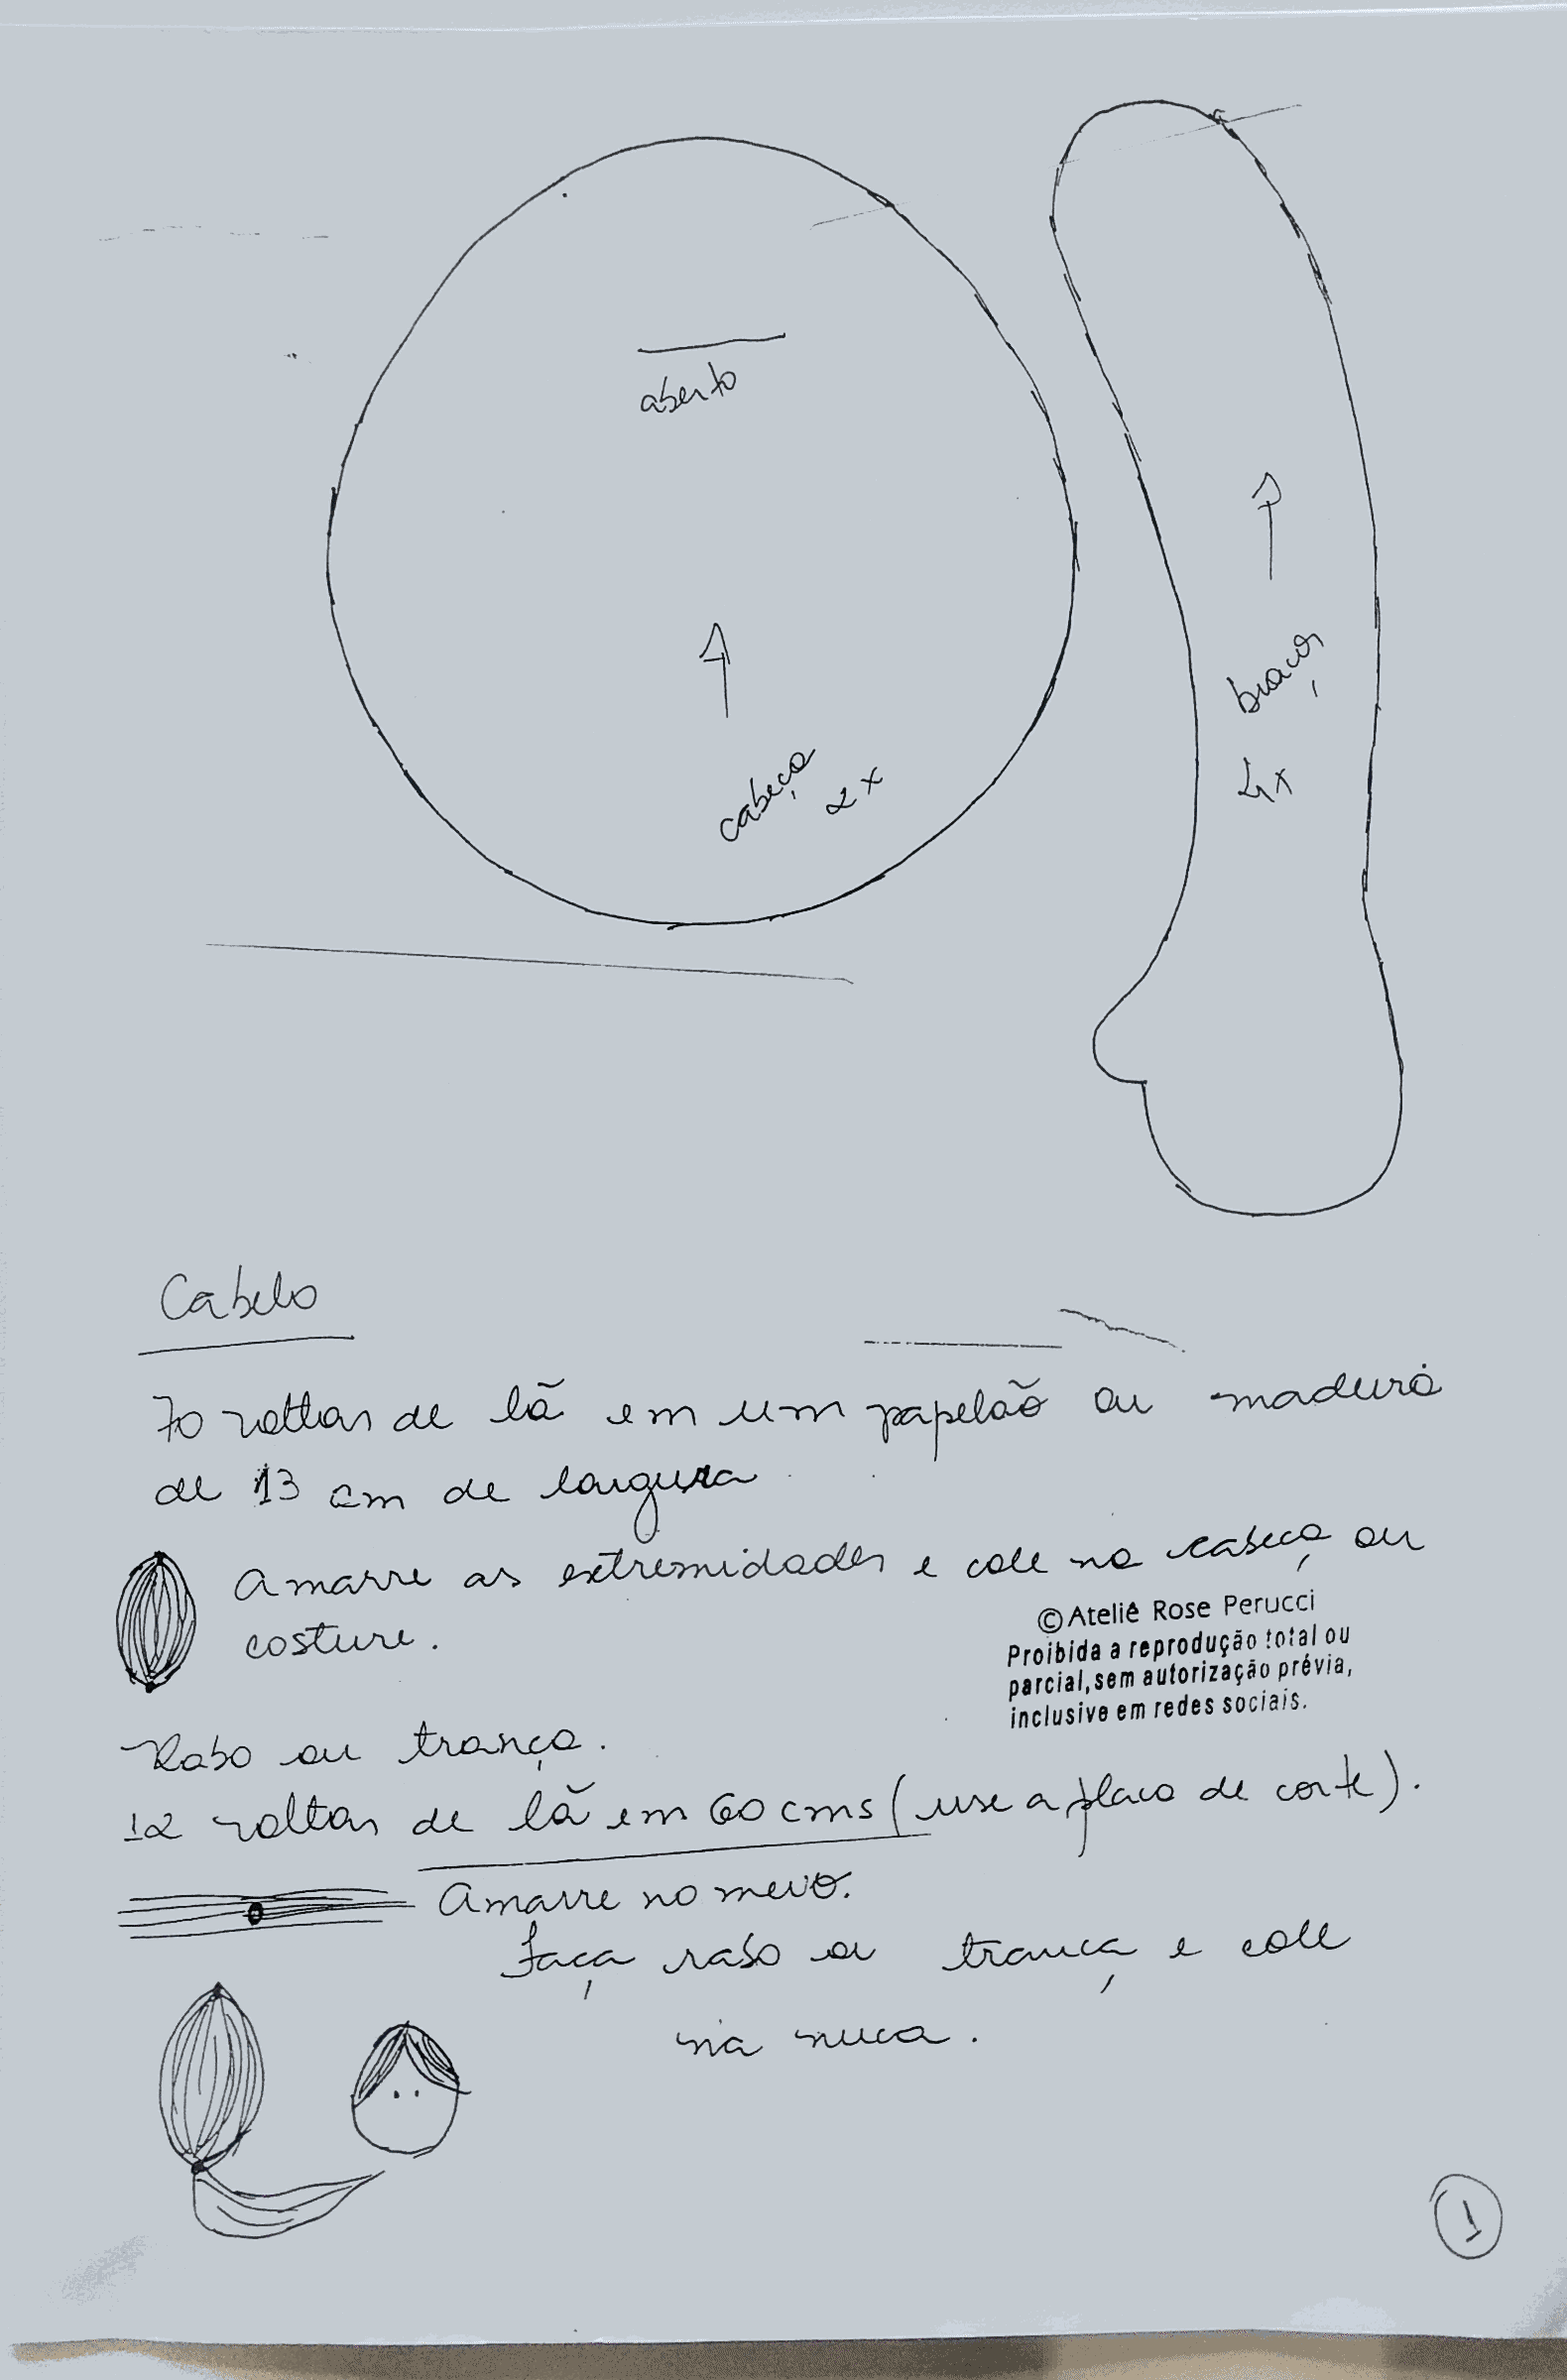 aberto
cabeça
2x
braços
4x
Cabelo
70 voltas de lã em um papelão ou madeira
de 13 cm de largura
Amarre as extremidades e cole na cabeça ou
costure.
©Ateliê Rose Perucci
Proibida a reprodução total ou
parcial, sem autorização prévia,
inclusive em redes sociais.
Rabo ou trança.
12 voltas de lã em 60 cms (use a placa de corte).
Amarre no meio.
Faça rabo ou trança e cole
na nuca.
1